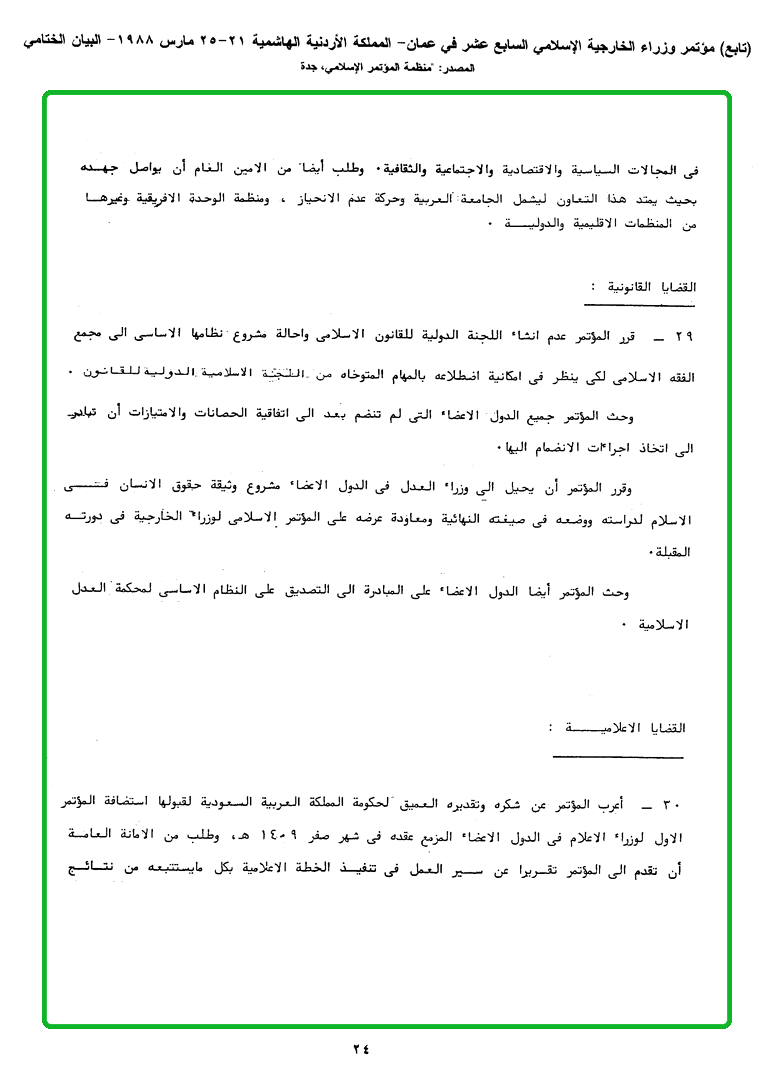 (تابع) مؤتمر وزراء الخارجية الإسلامي السابع عشر في عمان- المملكة الأردنية الهاشمية ٢١-٢٥ مارس ١٩٨٨- البيان الختامي
المصدر: "منظمة المؤتمر الإسلامي، جدة
فى المجالات السياسية والاقتصادية والاجتماعية والثقافية . وطلب أيضا من الامين العام أن يواصل جهده
بحيث يمتد هذا التعاون ليشمل الجامعة العربية وحركة عدم الانحياز ، ومنظمة الوحدة الافريقية وغيرها
من المنظمات الاقليمية والدولية .
القضايا القانونية :
٢٩ – قرر المؤتمر عدم انشاء اللجنة الدولية للقانون الاسلامى واحالة مشروع نظامها الاساسى الى مجمع
الفقه الاسلامى لكى ينظر فى امكانية اضطلاعه بالمهام المتوخاه من اللجنة الاسلامية الدولية للقانون .
وحث المؤتمر جميع الدول الاعضاء التى لم تنضم بعد الى اتفاقية الحصانات والامتيازات أن تبادر
الى اتخاذ اجراءات الانضمام اليها .
وقرر المؤتمر أن يحيل الى وزراء العدل فى الدول الاعضاء مشروع وثيقة حقوق الانسان فى
الاسلام لدراسته ووضعه فى صيغته النهائية ومعاودة عرضه على المؤتمر الاسلامى لوزراء الخارجية فى دورته
المقبلة .
وحث المؤتمر أيضا الدول الاعضاء على المبادرة الى التصديق على النظام الاساسى لمحكمة العدل
الاسلامية .
القضايا الاعلامية :
٣٠ – أعرب المؤتمر عن شكره وتقديره العميق لحكومة المملكة العربية السعودية لقبولها استضافة المؤتمر
الاول لوزراء الاعلام فى الدول الاعضاء المزمع عقده فى شهر صفر ١٤٠٩ هـ، وطلب من الامانة العامة
أن تقدم الى المؤتمر تقريرا عن سير العمل فى تنفيذ الخطة الاعلامية بكل مايستتبعه من نتائج
٢٤